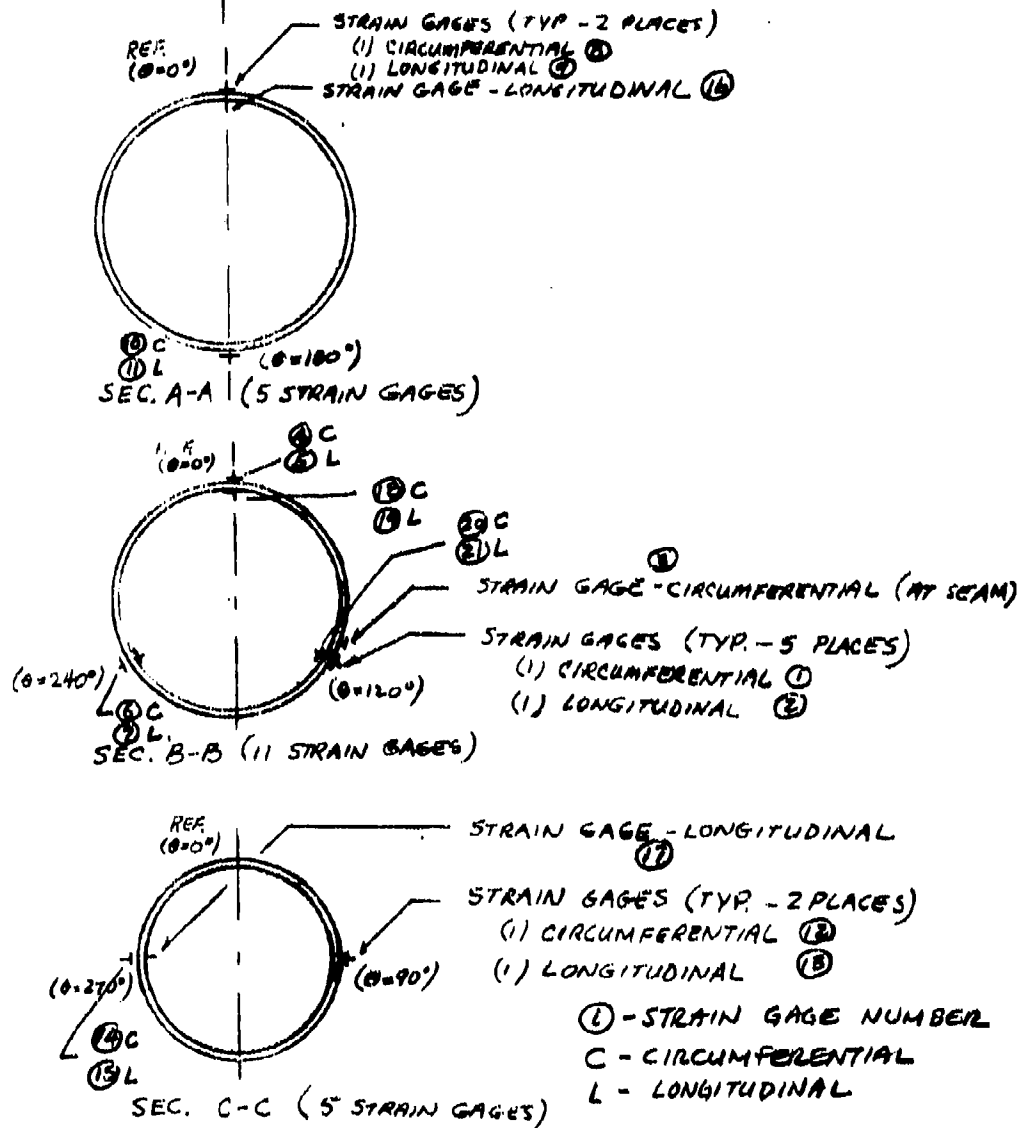 STRAIN GAGES (TYP - 2 PLACES)
(1) CIRCUMFERENTIAL 8
(1) LONGITUDINAL 9
STRAIN GAGE - LONGITUDINAL 16
REF.
(θ=0°)
10 C
11 L
(θ=180°)
SEC. A-A (5 STRAIN GAGES)
4 C
5 L
(θ=0°)
18 C
19 L
20 C
21 L
STRAIN GAGE - CIRCUMFERENTIAL (AT SEAM)
STRAIN GAGES (TYP. - 5 PLACES)
(1) CIRCUMFERENTIAL 1
(1) LONGITUDINAL 2
(θ=240°)
(θ=120°)
6 C
7 L.
SEC. B-B (11 STRAIN GAGES)
REF.
(θ=0°)
STRAIN GAGE - LONGITUDINAL
17
STRAIN GAGES (TYP. - 2 PLACES)
(1) CIRCUMFERENTIAL 12
(1) LONGITUDINAL 13
(θ=270°)
(θ=90°)
14 C
15 L
1 - STRAIN GAGE NUMBER
C - CIRCUMFERENTIAL
L - LONGITUDINAL
SEC. C-C (5 STRAIN GAGES)